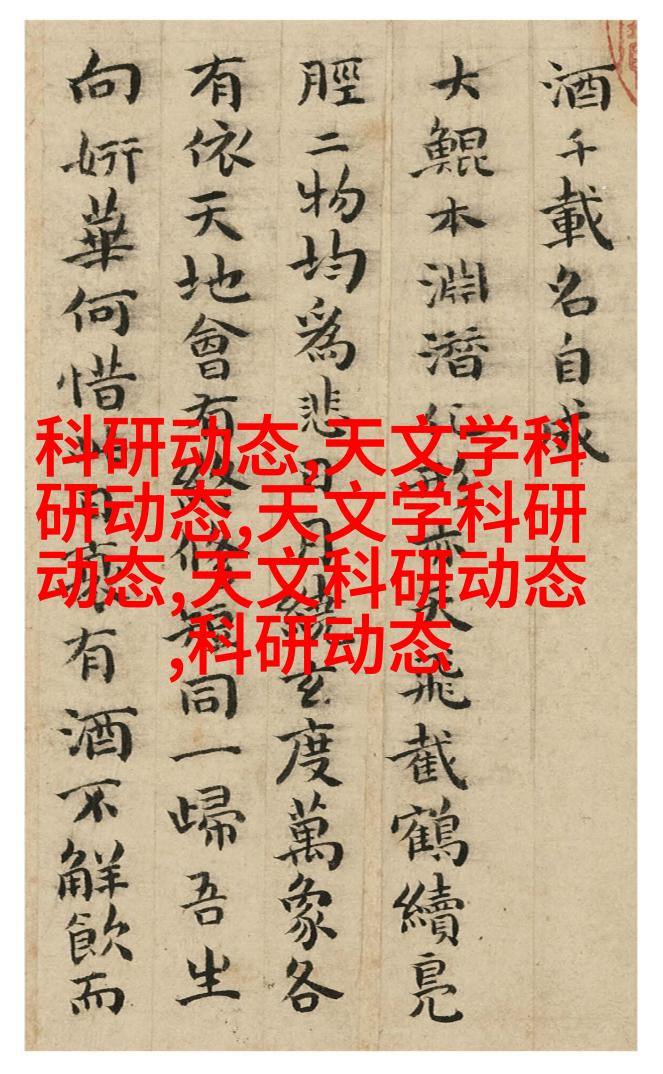 酒千載名自成
大鯤本淵潛亦天飛截鶴續鳧
脛二物均爲悲日月繞玄度萬象各
有依天地會有終脩短同一歸吾生
向妍華何惜此日有酒不解飲而
科研动态,天文学科
研动态,天文学科研
动态,天文科研动态
,科研动态